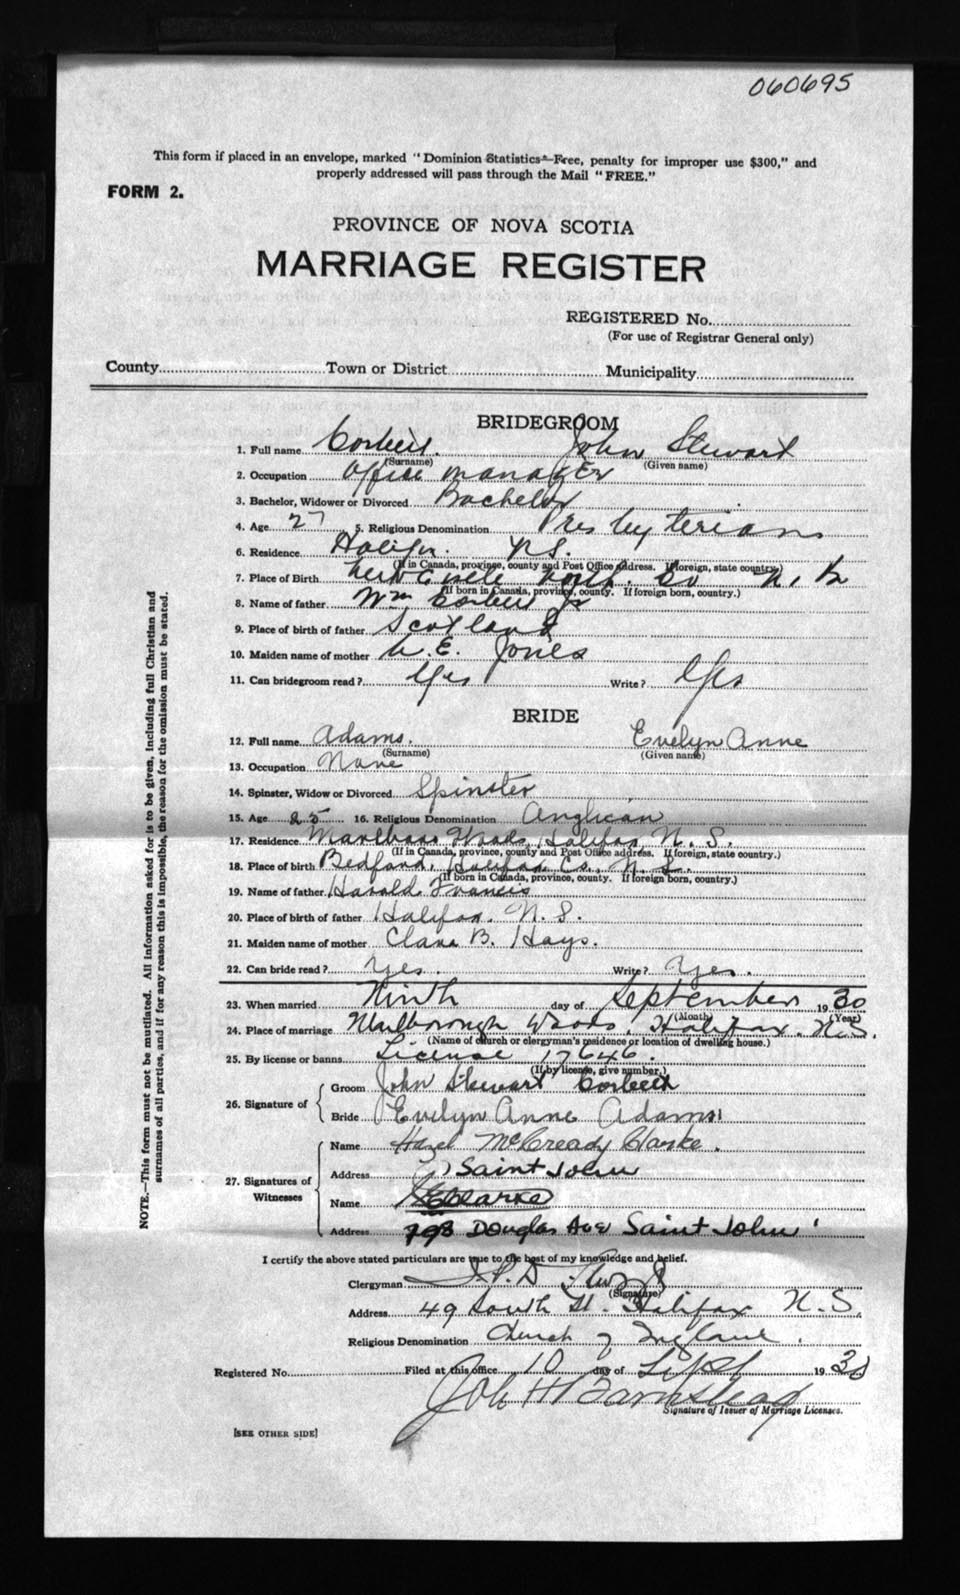 060695
This form if placed in an envelope, marked "Dominion Statistics—Free, penalty for improper use $300," and
properly addressed will pass through the Mail "FREE."
FORM 2.
PROVINCE OF NOVA SCOTIA
MARRIAGE REGISTER
REGISTERED No.
(For use of Registrar General only)
County Town or District Municipality
BRIDEGROOM
1. Full name Corbett John Stewart
(Surname) (Given name)
2. Occupation Office manager
3. Bachelor, Widower or Divorced Bachelor
4. Age 27 5. Religious Denomination Presbyterian
6. Residence Halifax. N.S.
(If in Canada, province, county and Post Office address. If foreign, state country.)
7. Place of Birth Newcastle North. Co N. B
(If born in Canada, province, county. If foreign born, country.)
8. Name of father Wm Corbett Jr
9. Place of birth of father Scotland
10. Maiden name of mother E. Jones
11. Can bridegroom read? Yes Write? Yes
BRIDE
12. Full name Adams. Evelyn Anne
(Surname) (Given name)
13. Occupation None
14. Spinster, Widow or Divorced Spinster
15. Age 25 16. Religious Denomination Anglican
17. Residence Marlboro Woods, Halifax, N. S.
(If in Canada, province, county and Post Office address. If foreign, state country.)
18. Place of birth Bedford, Halifax Co., N. S.
(If born in Canada, province, county. If foreign born, country.)
19. Name of father Harold Francis
20. Place of birth of father Halifax. N. S.
21. Maiden name of mother Clara B. Hays.
22. Can bride read? Yes. Write? Yes.
23. When married Ninth day of September 1930
(Month) (Year)
24. Place of marriage Marlborough Woods, Halifax. N.S.
(Name of church or clergyman's residence or location of dwelling house.)
25. By license or banns License 17646.
(If by license, give number.)
26. Signature of Groom John Stewart Corbett
Bride Evelyn Anne Adams
27. Signatures of Witnesses
Name Hazel McCready Clarke.
Address Saint John
Name Clarke
Address 798 Douglas Ave Saint John
I certify the above stated particulars are true to the best of my knowledge and belief.
Clergyman
(Signature)
Address 49 South St. Halifax N.S.
Religious Denomination Church of England.
Registered No. Filed at this office 10 day of Sept 1930
Signature of Issuer of Marriage Licenses.
[SEE OTHER SIDE]
NOTE.—This form must not be mutilated. All information asked for is to be given, including full Christian and
surnames of all parties, and if for any reason this is impossible, the reason for the omission must be stated.